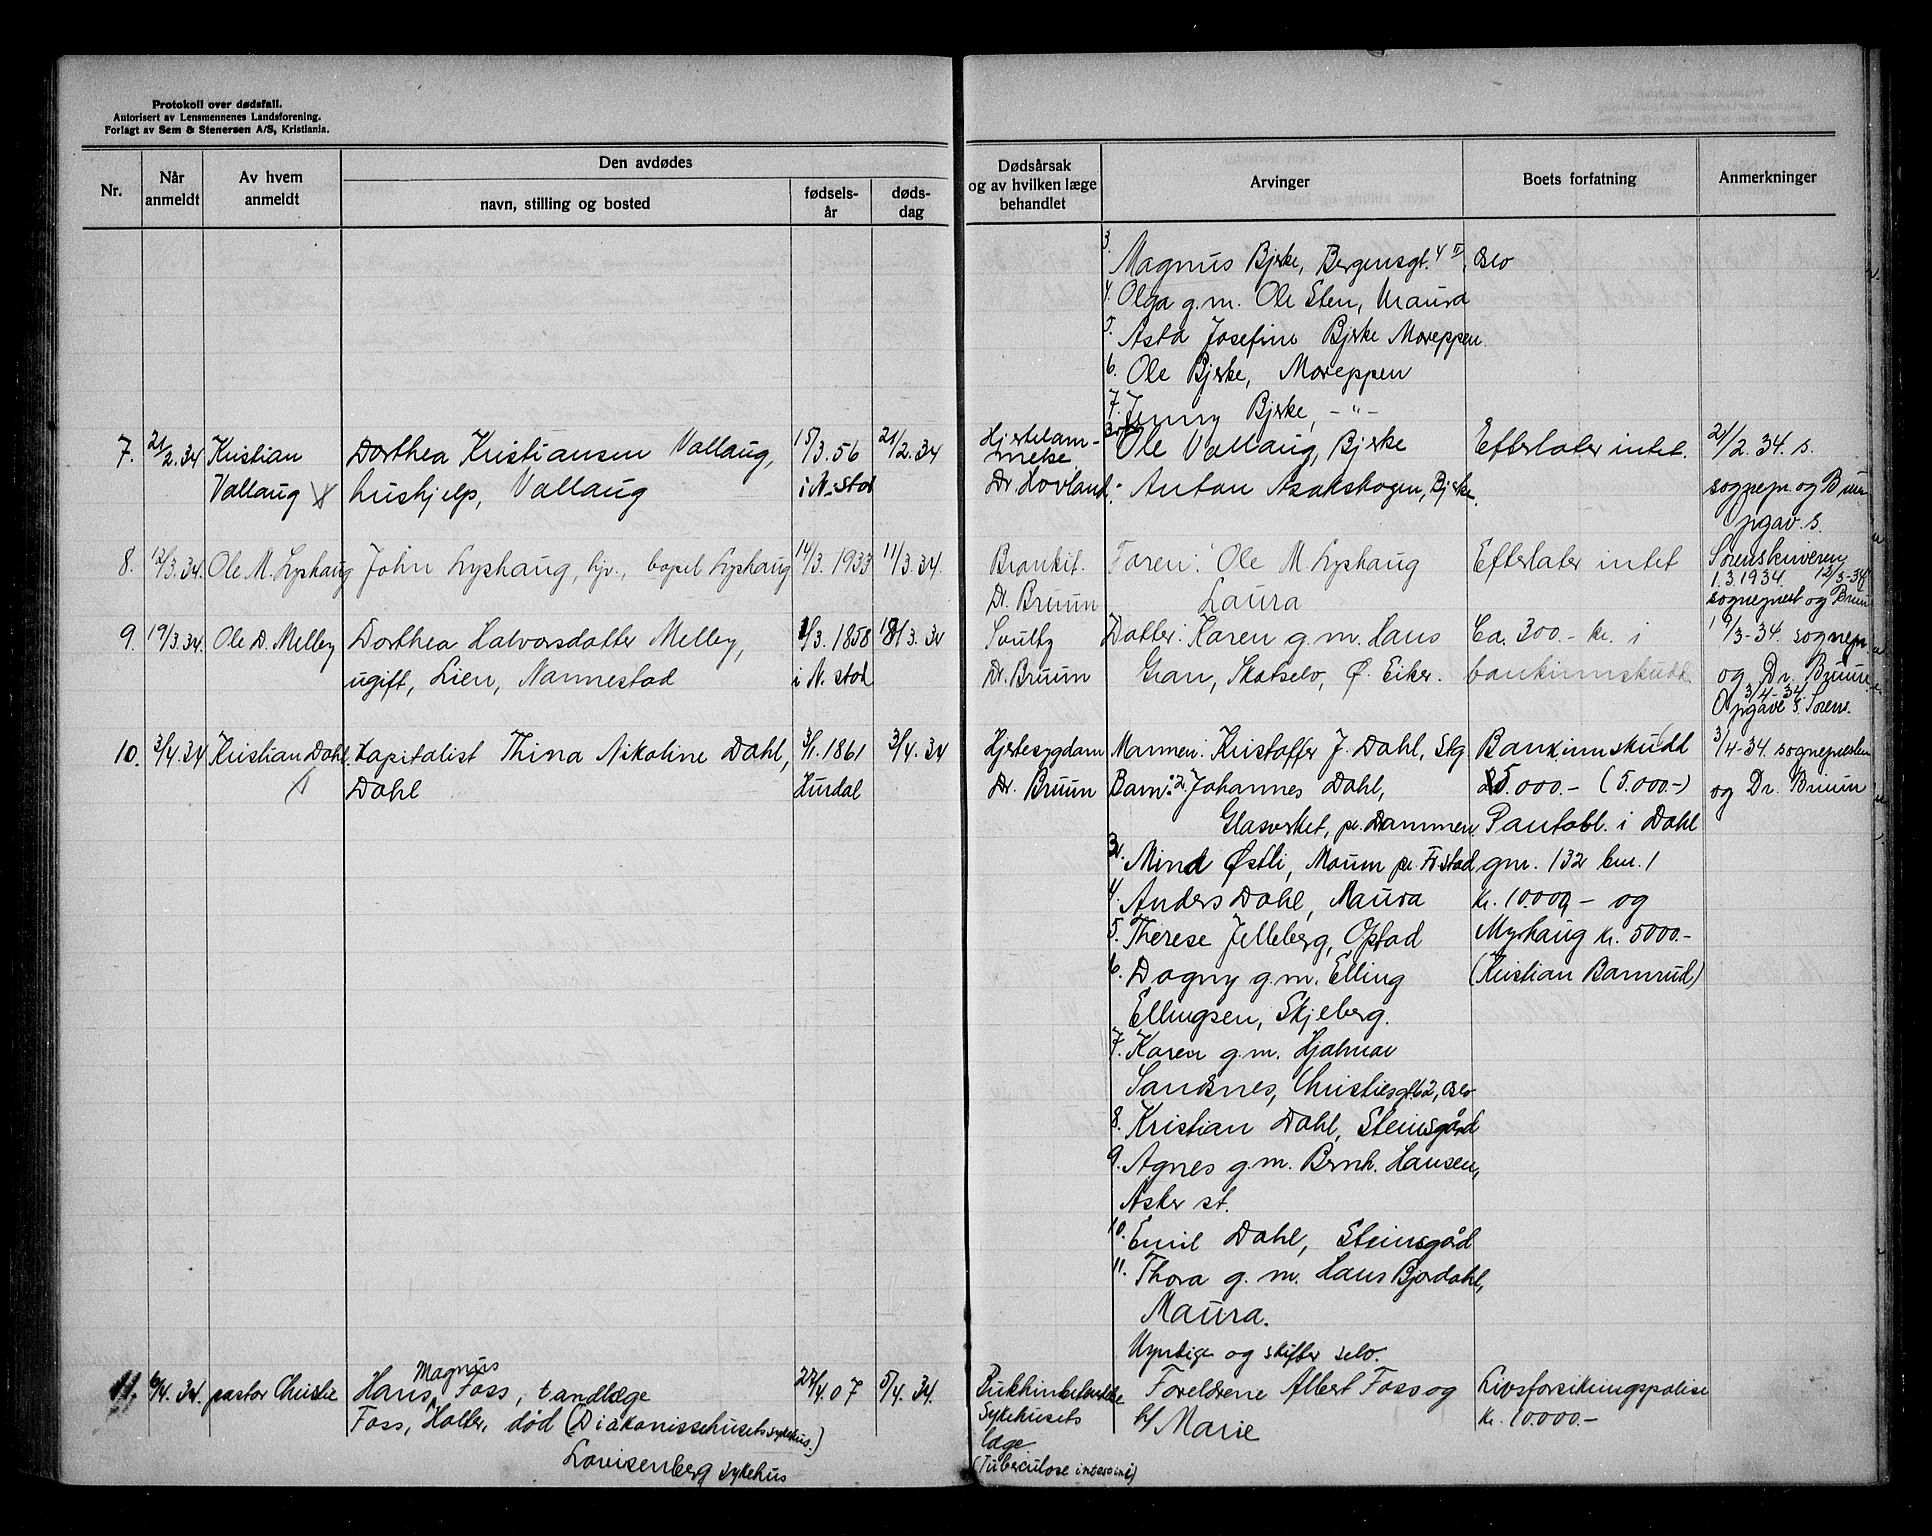 Protokoll over dødsfall.
Autorisert av Lensmennenes Landsforening.
Forlagt av Sem & Stenersen A/S, Kristiania.
Nr.
Når anmeldt
Av hvem anmeldt
Den avdødes
navn, stilling og bosted
fødsels-år
døds-dag
Dødsårsak og av hvilken læge behandlet
Arvinger
Boets forfatning
Anmerkninger
3. Magnus Bjerke, Bergensgt. 4 II, Oslo
4. Olga g.m. Ole Sten, Maura
5. Asta Josefine Bjerke Moreppen
6. Ole Bjerke, Moreppen
7. Jenny Bjerke, -"-
7. 21/2.34 Kristian Dorthea Kristiansen Vallaug, 15/3.56 21/2.34 Hjertelam- Ole Vallaug, Bjerke Efterlater intet. 21/2.34 s.
Vallaug hushjelp, Vallaug i N.stad melse Dr Hovland Anton Asakskogen, Bjerke sognepr og Bruu
opgav. s.
8. 12/3.34. Ole M. Lyshaug John Lyshaug, hjv., bopel Lyshaug 14/3.1933 11/3.34. Bronkit. Faren: Ole M. Lyshaug Efterlater intet Sorenskriveren
1.3.1934. 12/3-34
Dr. Bruun Laura sogneprest og Bruu
9. 19/3.34. Ole D. Melby Dorthea Halvorsdatter Melby, /3.1858 18/3.34 Datter: Karen g.m. Hans Ca. 300.- kr. i 19/3-34. sognepr.
ugift, Lien, Nannestad i N. stad Dr. Bruun Gran, Skotselv, Ø. Eiker. bankinnskudd. og Dr. Bruun
3/4-34.
Opgave s. Soren.
10. 3/4.34 Kristian Dahl. Kapitalist Thina Nikoline Dahl, 3/1.1861 3/4.34 Hjertesygdam Mannen: Kristoffer J. Dahl, Stg Bankinnskudd 3/4-34 sognepresten
Dahl Hurdal Dr. Bruun Barn: 2. Johannes Dahl, 25.000.- (5.000.-) og Dr. Bruun
Glasverket, pr. Drammen. Pantobl. i Dahl
3. Mina Østli, Moum pr. Fr.stad gnr. 132 bnr. 1
4. Anders Dahl, Maura Kr. 10.000,- og
5. Therese Jelleberg, Opstad Myrhaug kr. 5000.-
6. Dagny g.m. Elling (Kristian Bamrud)
Ellingsen, Skjeberg.
7. Karen g.m. Hjalmar
Sandsnes, Christiesgt 2, Oslo
8. Kristian Dahl, Steinsgård
9. Agnes g.m. Bernh. Hansen,
Asker st.
10. Emil Dahl, Steinsgård
11. Thora g.m. Hans Bjordahl,
Maura.
Myndige og skifter selv.
11. 6/4.34. pastor Christie Hans Magnus Foss, tandlæge 27/4.07 5/4.34. Bukhinnebetendelse Foreldrene Albert Foss og Livsforsikringspolise
Foss, Holter, død (Diakonissehusets sykehus.) Sykehusets h/ Marie kr. 10.000.-
Lovisenberg sykehus læge
(Tuberculose intestini)